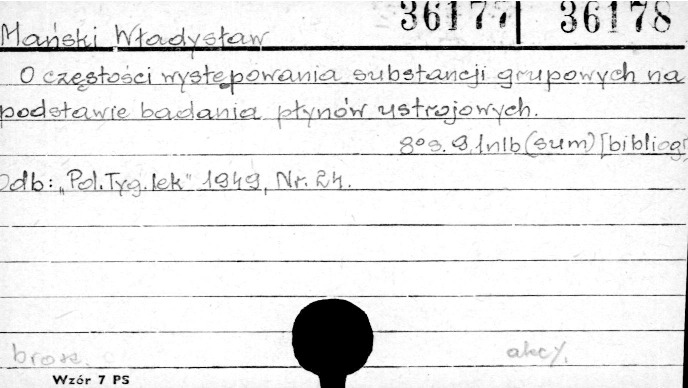 36177 36178
Mański Władysław
O częstości występowania substancji grupowych na
podstawie badania płynów ustrojowych.
8° s. 9, 1nlb (sum) [bibliogr
Odb: „Pol. Tyg. lek" 1949, Nr. 24.
brosz. akcy.
Wzór 7 PS